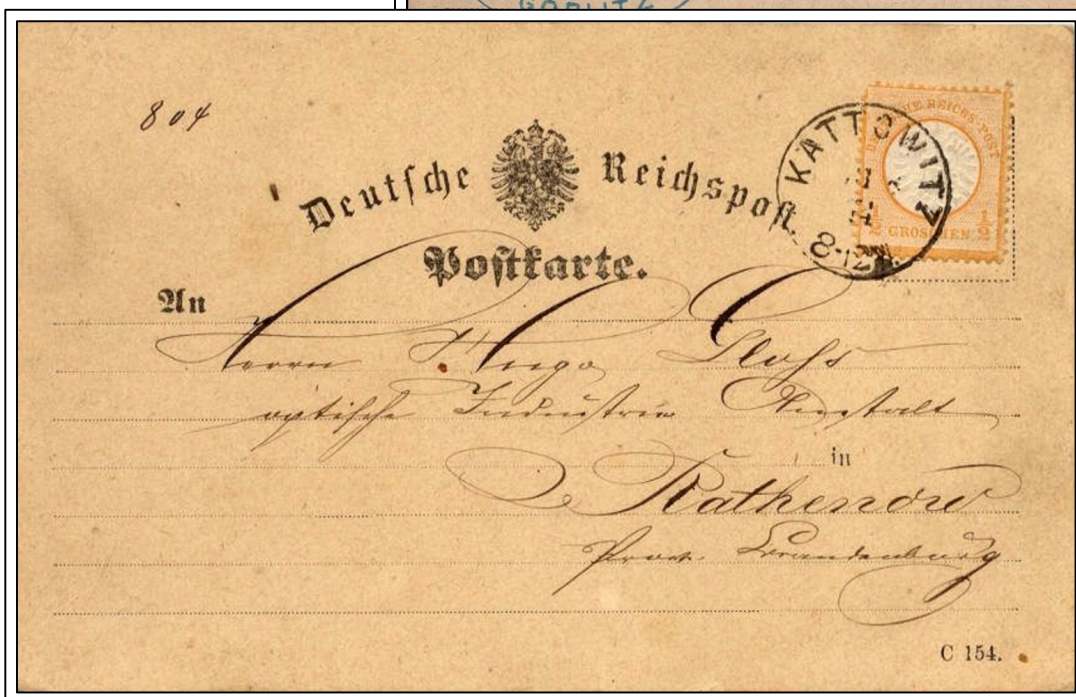 GÖRLITZ
804
Deutsche Reichspost.
Postkarte.
KATTOWITZ
8-12
DEUTSCHE REICHS-POST
1/2 GROSCHEN 1/2
An
Herrn Hugo
optische Industrie Anstalt
in
Rathenow
Prov. Brandenburg
C 154.